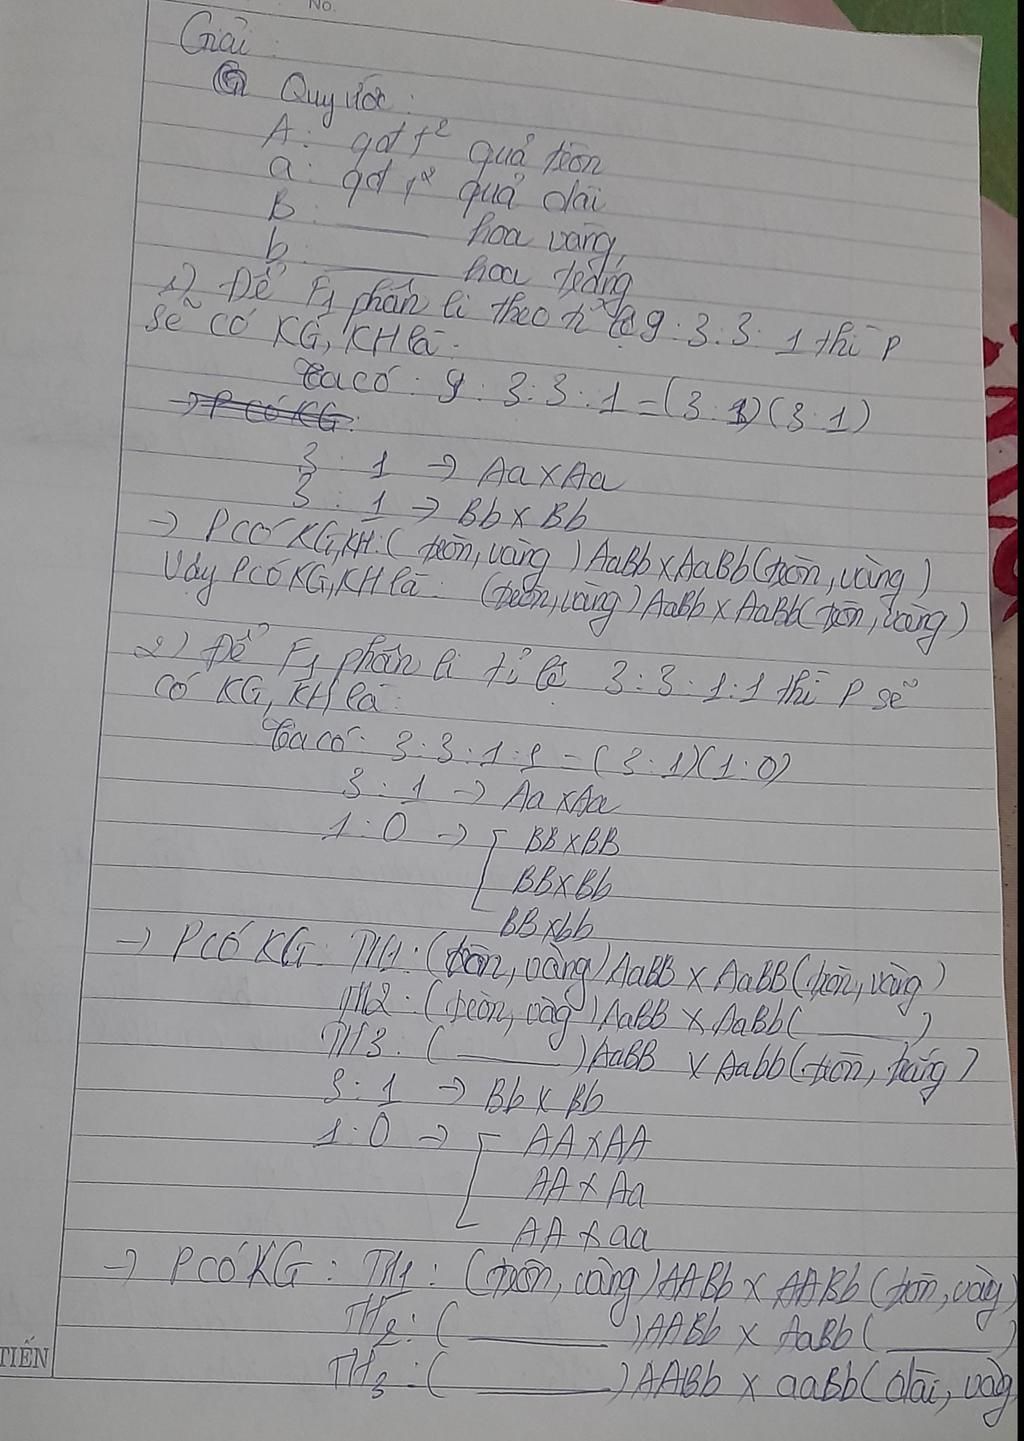 No.
Giải :
Quy ước :
A : qđ t² quả tròn
a : qđ t² quả dài
B : ____ hoa vàng,
b : ____ hoa trắng
1) Để F1 phân li theo tỉ lệ 9 : 3 : 3 : 1 thì P
sẽ có KG, KH là :
Ta có : 9 : 3 : 3 : 1 = (3 : 1)(3 : 1)
→ P có KG :
3 : 1 → Aa x Aa
3 : 1 → Bb x Bb
→ P có KG, KH : ( tròn, vàng ) AaBb x AaBb (tròn, vàng)
Vậy P có KG, KH là : (tròn, vàng) AaBb x AaBb (tròn, vàng)
2) Để F1 phân li tỉ lệ 3 : 3 : 1 : 1 thì P sẽ
có KG, KH là :
Ta có : 3 : 3 : 1 : 1 = (3 : 1)(1 : 0)
3 : 1 → Aa x Aa
1 : 0 → [ BB x BB
BB x Bb
BB x bb
→ P có KG : TH1 : (tròn, vàng) AaBB x AaBB (tròn, vàng)
TH2 : (tròn, vàg) AaBB x AaBb ( ____ )
TH3 : ( ____ ) AaBB x Aabb (tròn, trắng)
3 : 1 → Bb x Bb
1 : 0 → [ AA x AA
AA x Aa
AA x aa
→ P có KG : TH1 : (tròn, vàng) AABb x AABb (tròn, vàg)
TH2 : ( ____ ) AABb x AaBb ( ____ )
TH3 : ( ____ ) AABb x aaBb (dài, vàg
TIẾN